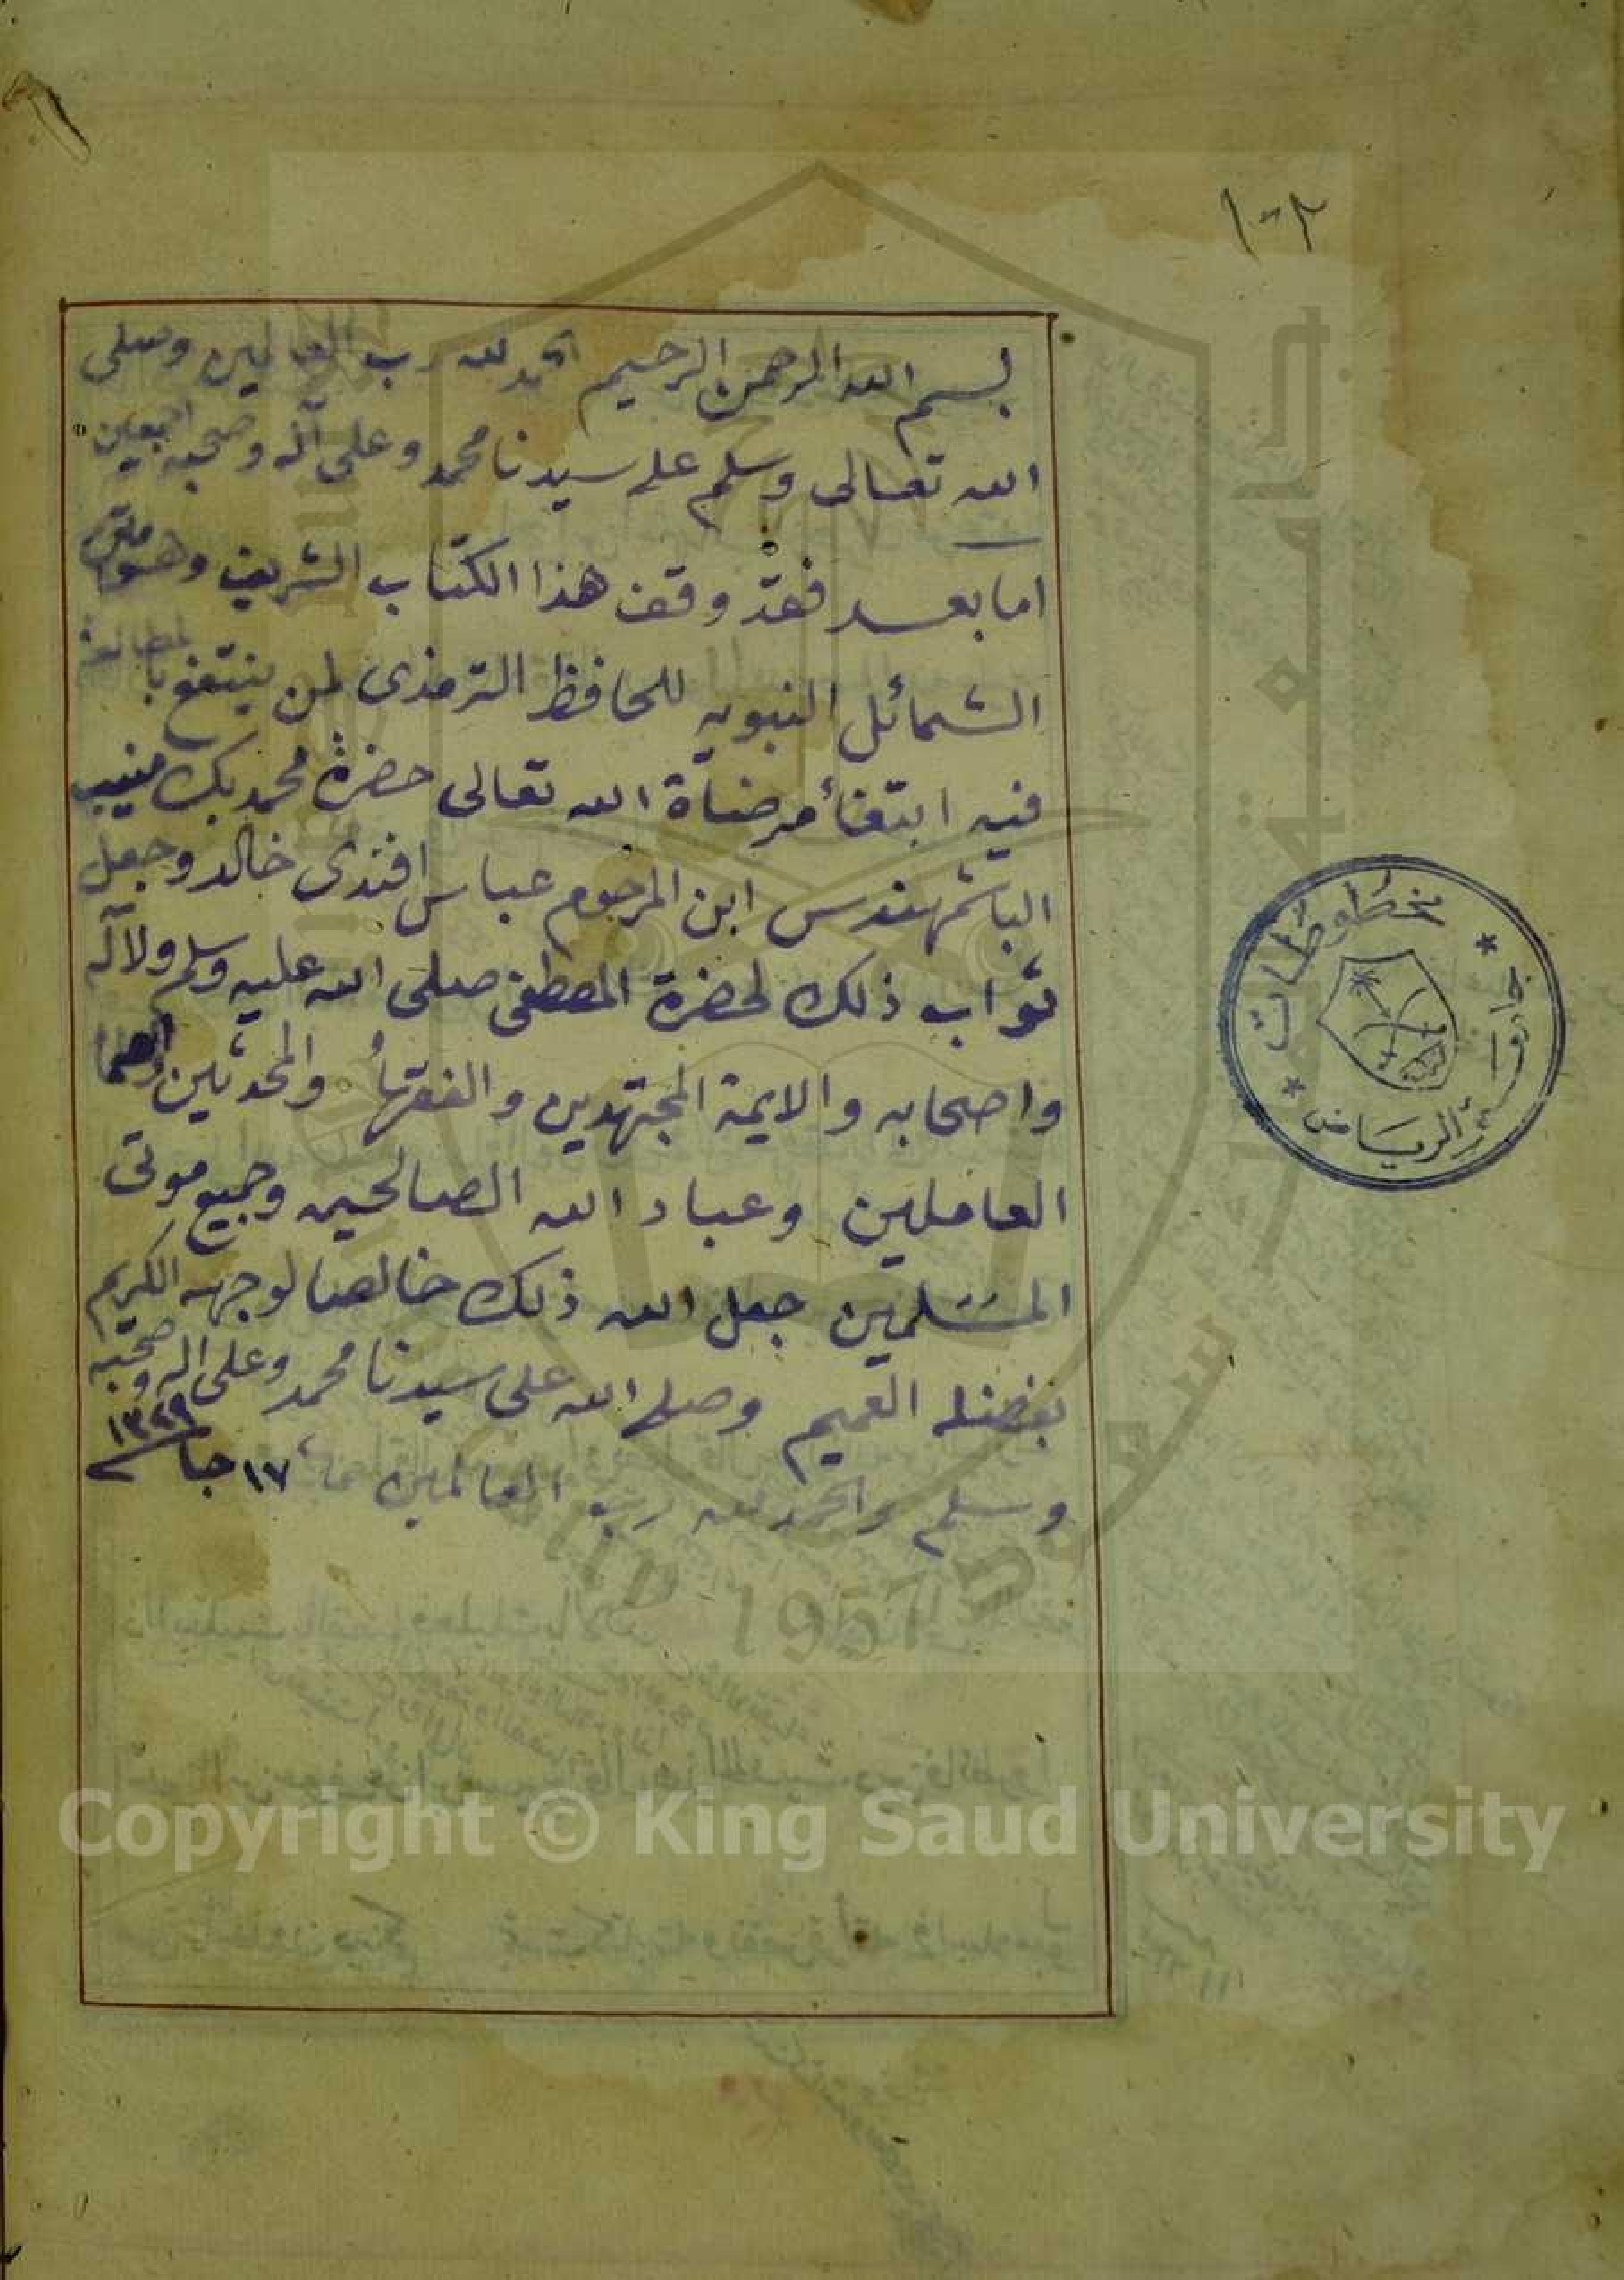 ١٠٢
بسم الله الرحمن الرحيم الحمد لله رب العالمين وصلى
الله تعالى وسلم على سيدنا محمد وعلى آله وصحبه اجمعين
اما بعد فقد وقف هذا الكتاب الشريف وهو متن
الشمائل النبويه للحافظ الترمذى لمن ينتفع بالمطالعة
فيه ابتغأ مرضاة الله تعالى حضرة محمد بك منيب
الباشمهندس ابن المرحوم عباس افندى خالد وجعل
ثواب ذلك لحضرة المصطفى صلى الله عليه وسلم ولآله
واصحابه والايمة المجتهدين والفقهاء والمحدثين
العاملين وعباد الله الصالحين وجميع موتى
المسلمين جعل الله ذلك خالصا لوجهه الكريم
بفضله العميم وصلى الله على سيدنا محمد وعلى اله وصحبه
وسلم والحمد لله رب العالمين ١٧ جا ١٣٢٩
مخطوطات
الرياض
جامعة الملك سعود
1957
Copyright © King Saud University